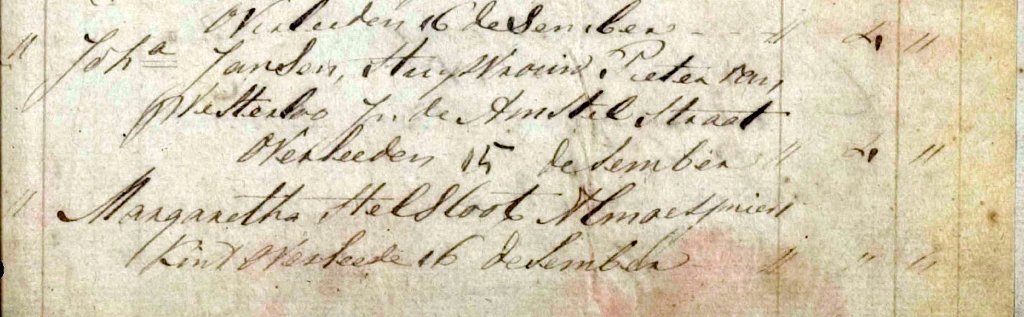 Overleeden 16 desember - - " 2. "
" Joha Jansen, Huysvrouw Pieter van
Westerloo In de Amstel Straat
Overleeden 15 desember " 2. "
" Margaretha Stelsloot
Kint Overleede 16 desember - " " "